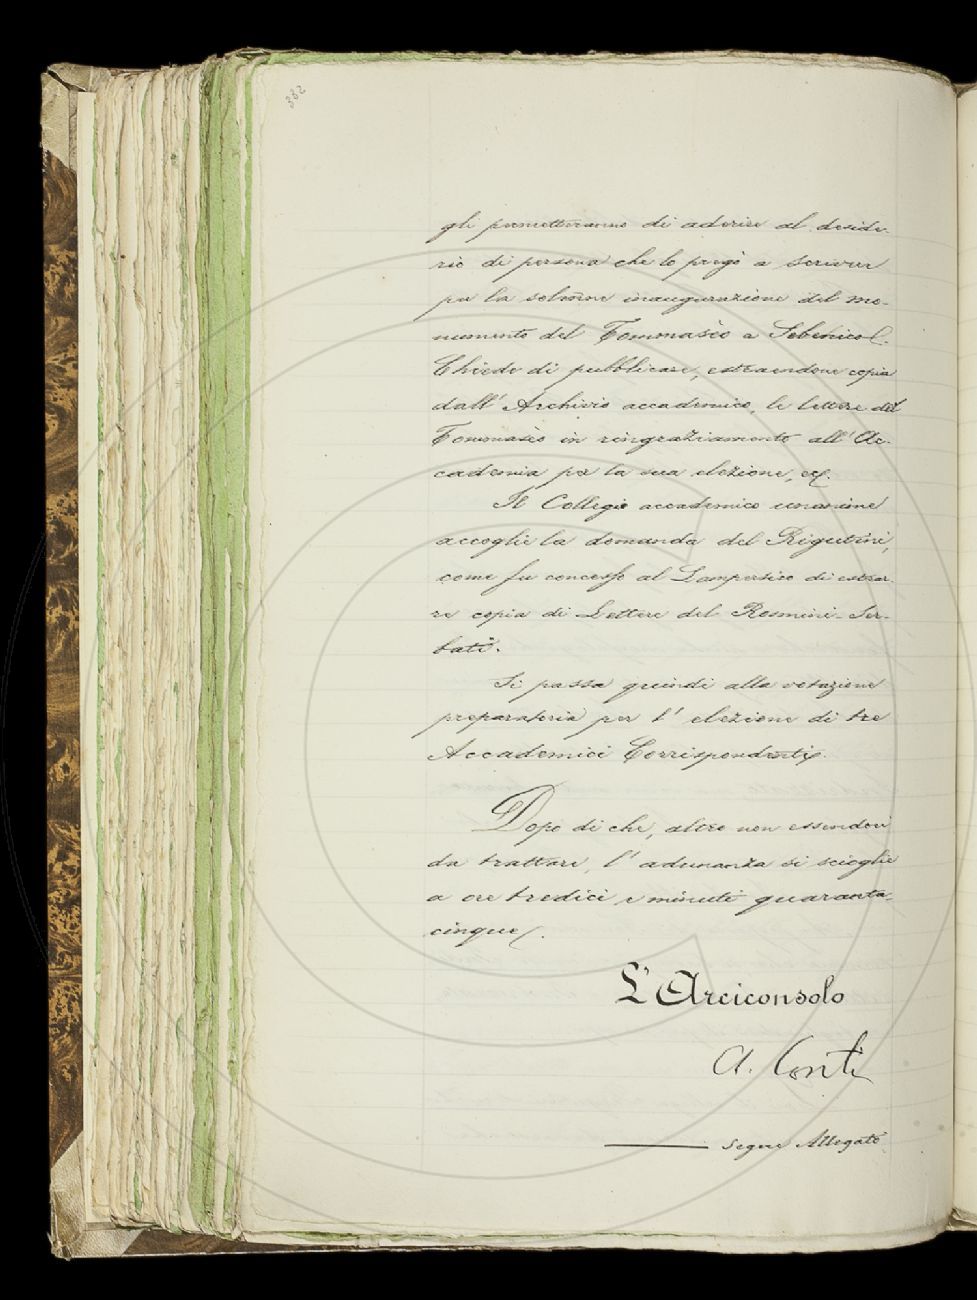 382
gli permetteranno di aderire al deside-
rio di persona che lo pregò a scriver
per la solenne inaugurazione del mo-
numento del Tommasèo a Sebenico.
Chiede di pubblicare, estraendone copia
dall' Archivio accademico, le lettere del
Tommasèo in ringraziamento all' Ac-
cademia per la sua elezione,
Il Collegio accademico unanime
accoglie la domanda del Rigutini,
come fu concesso al Lampertico di estrar
re copia di Lettere del Rosmini-Ser-
bati.
Si passa quindi alla votazione
preparatoria per l' elezione di tre
Accademici Corrispondenti.
Dopo di che, altro non essendovi
da trattare, l' adunanza si scioglie
a ore tredici e minuti quaranta-
cinque.
L' Arciconsolo
A. Conti
segue Allegato